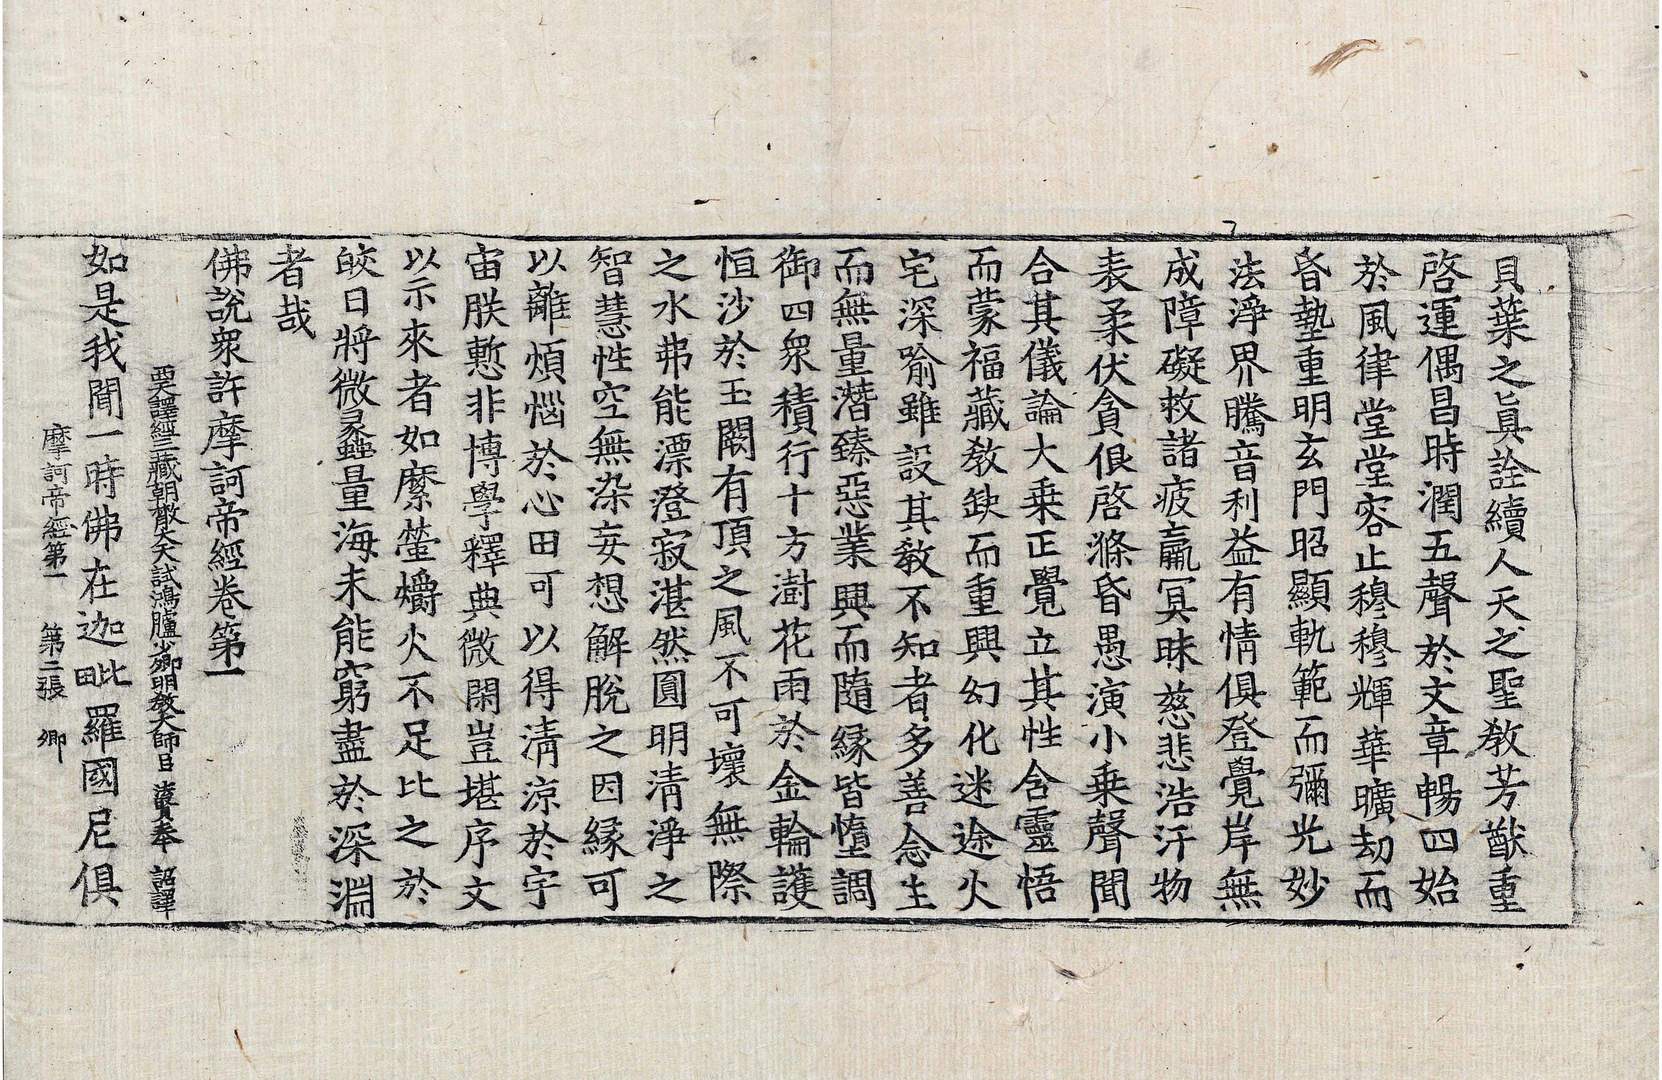 貝葉之眞詮續人天之聖教芳猷重
啓運偶昌時潤五聲於文章暢四始
於風律堂堂容止穆穆輝華曠劫而
昏墊重明玄門昭顯軌範而彌光妙
法淨界騰音利益有情俱登覺岸無
成障礙救諸疲羸冥昧慈悲浩汗物
表柔伏貪很啓滌昏愚演小乗聲聞
合其儀論大乗正覺立其性含靈悟
而蒙福藏教缺而重興幻化迷途火
宅深喻雖設其教不知者多善念生
而無量潛臻惡業興而隨緣皆墮調
御四衆積行十方澍花雨於金輪護
恒沙於玉闕有頂之風不可壞無際
之水弗能漂澄寂湛然圓明清淨之
智慧性空無染妄想解脫之因緣可
以離煩惱於心田可以得清涼於宇
宙朕慙非博學釋典微閑豈堪序文
以示來者如縻螢爝火不足比之於
皎日將微蠡量海未能窮盡於深淵
者哉
佛說衆許摩訶帝經卷第一
西天譯經三藏朝散大夫試鴻臚少卿明教大師臣 法賢奉 詔譯
如是我聞一時佛在迦毗羅國尼俱
摩訶帝經第一 第二張 卿